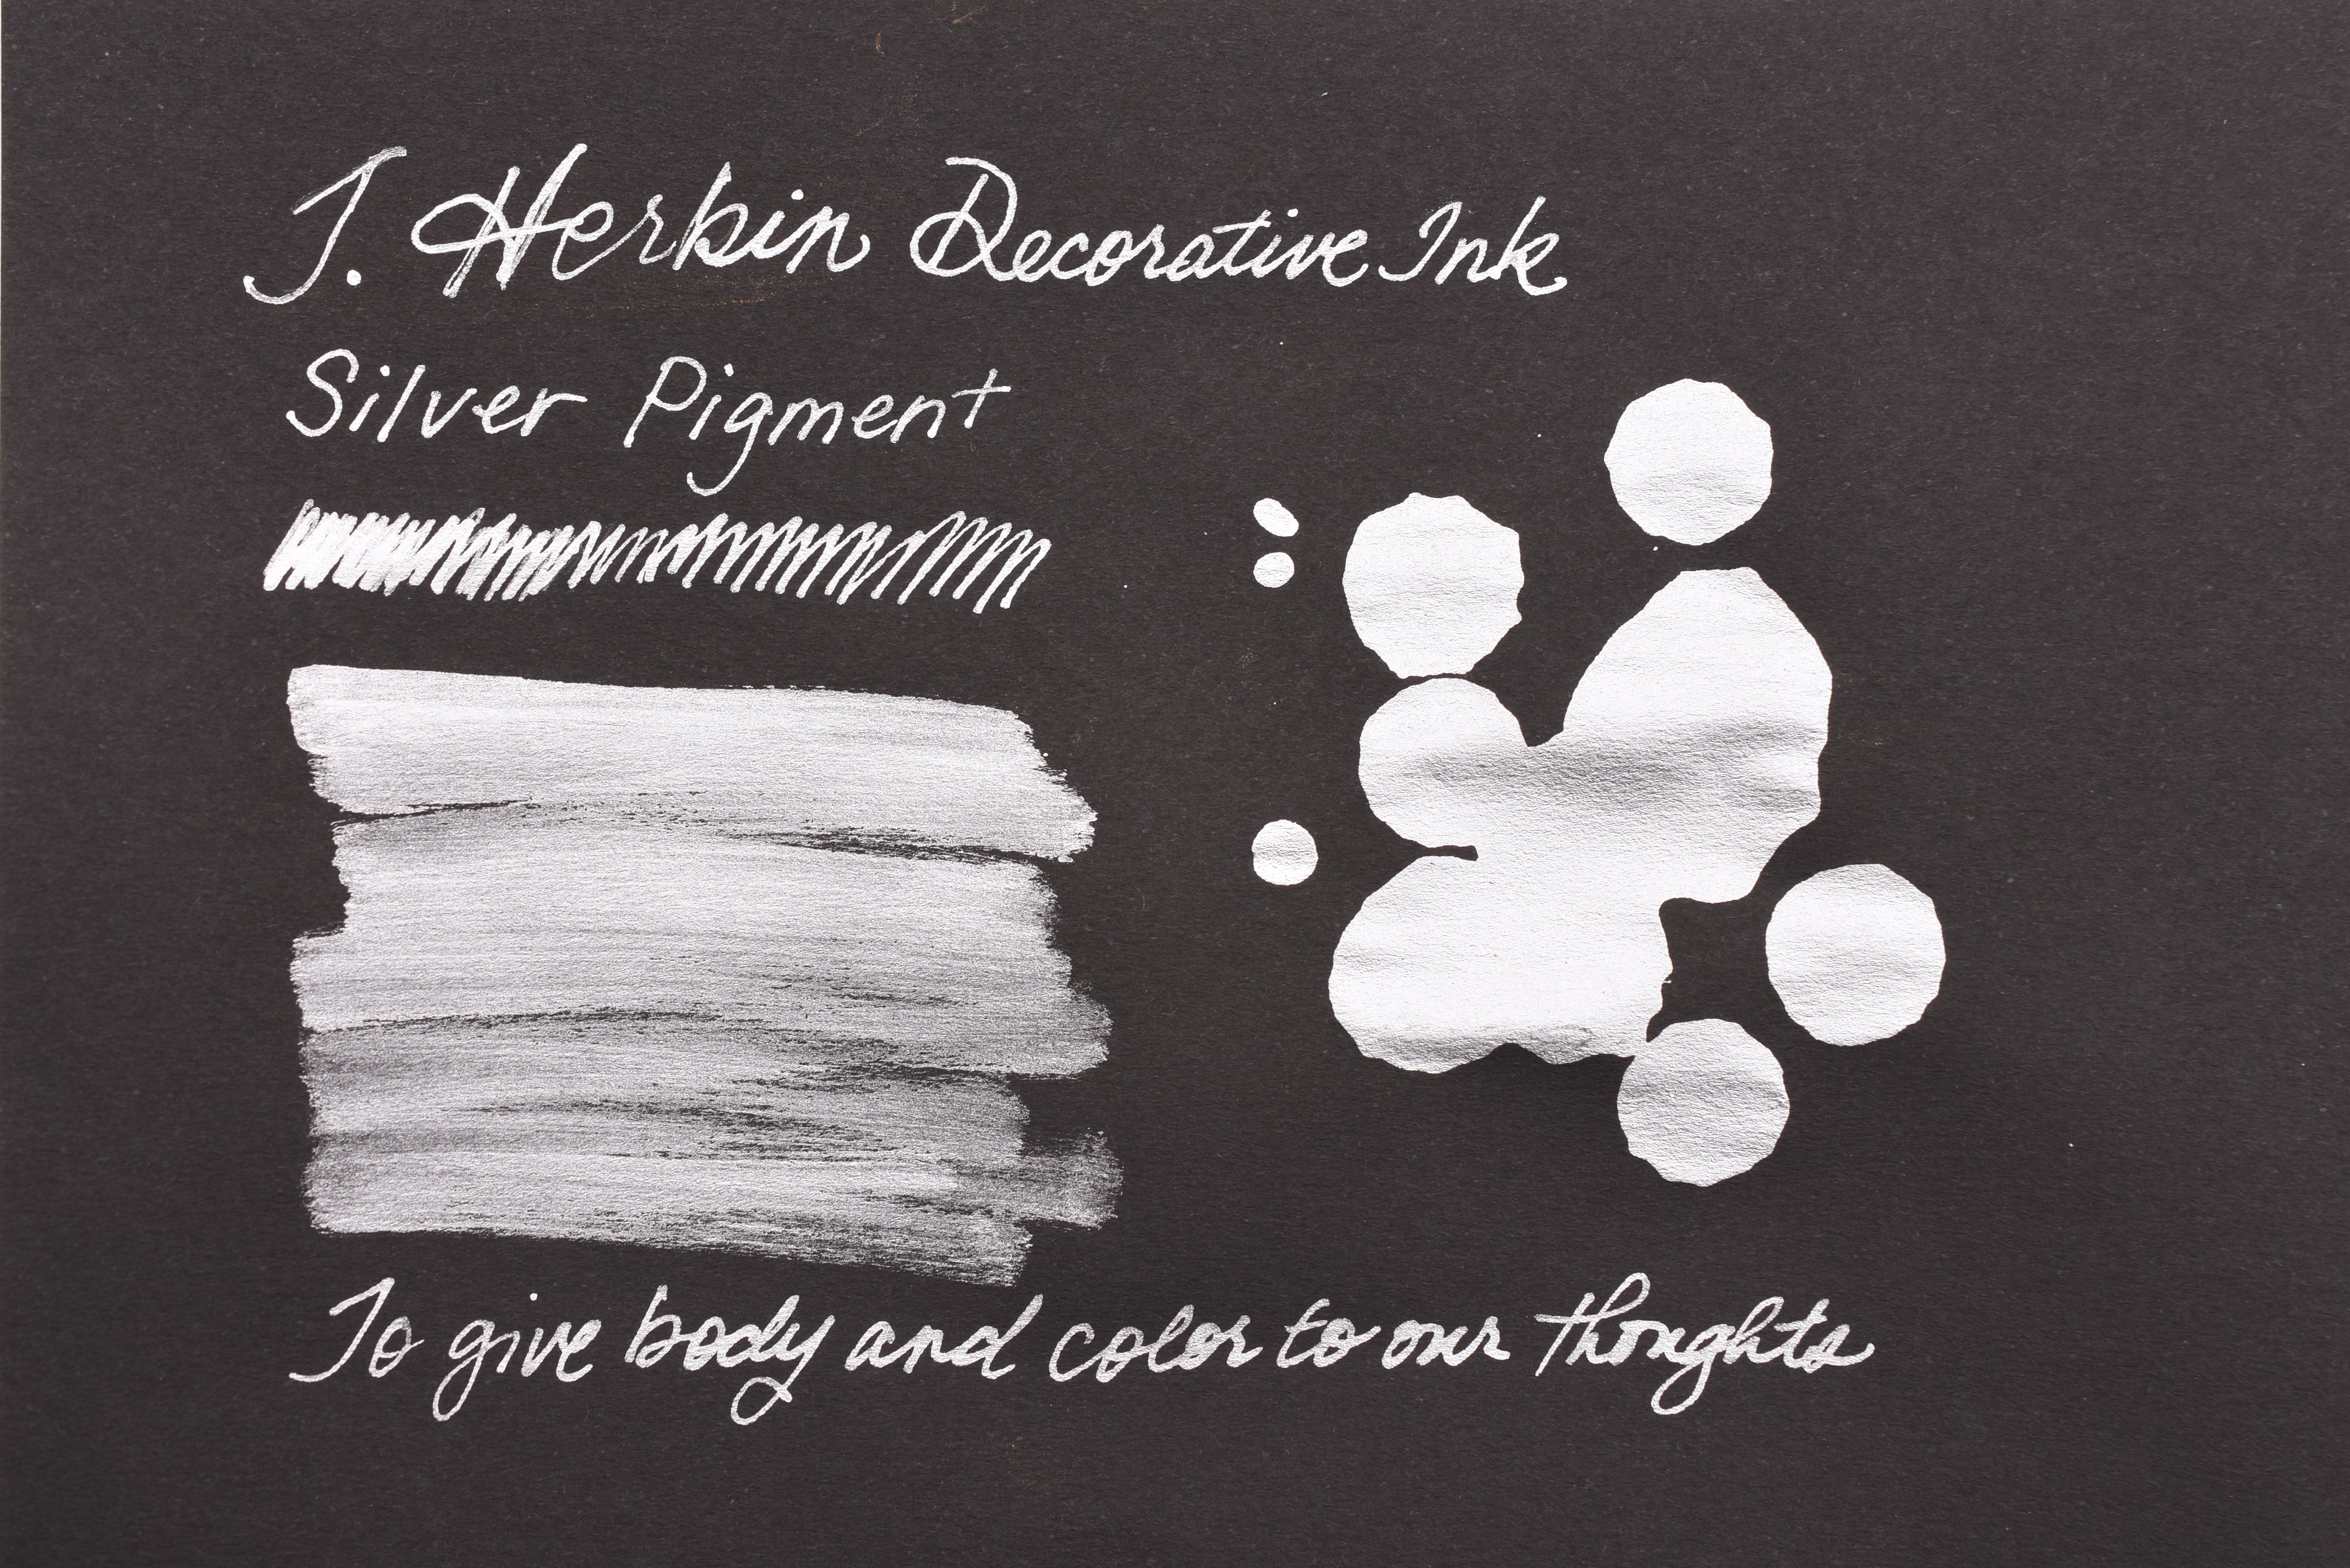 J. Herbin Decorative Ink
Silver Pigment
To give body and color to our thoughts